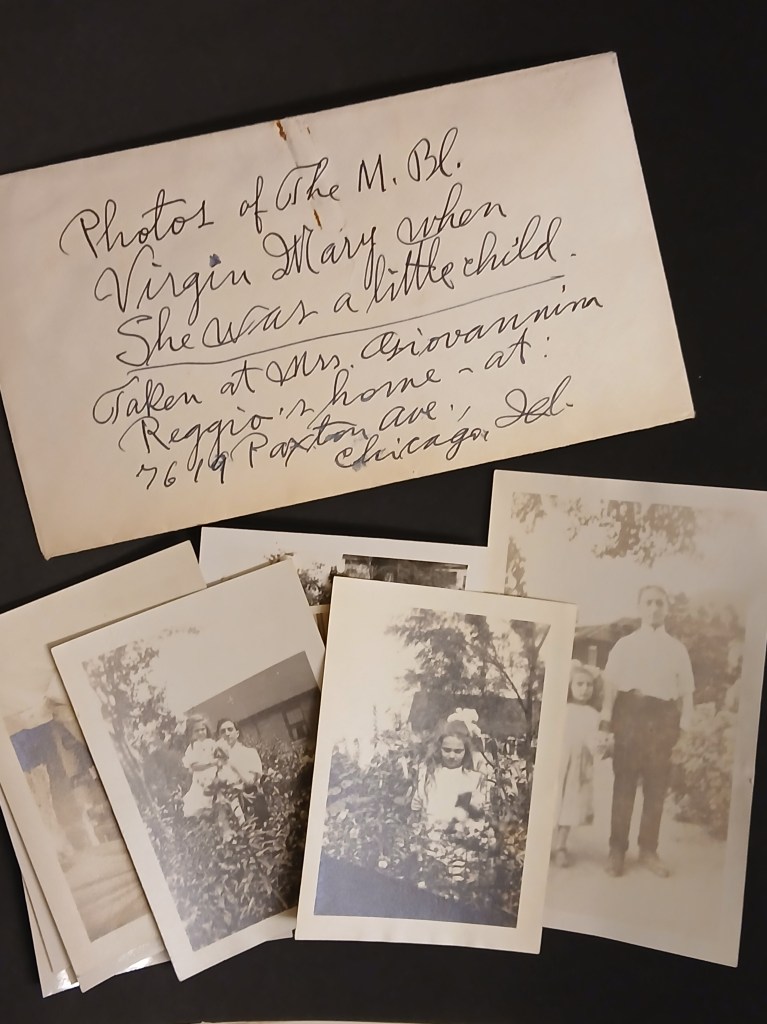 Photos of The M. Bl.
Virgin Mary when
She was a little child.
Taken at Mrs. Giovannina
Reggio's home - at:
7619 Paxton Ave.,
Chicago, Ill.